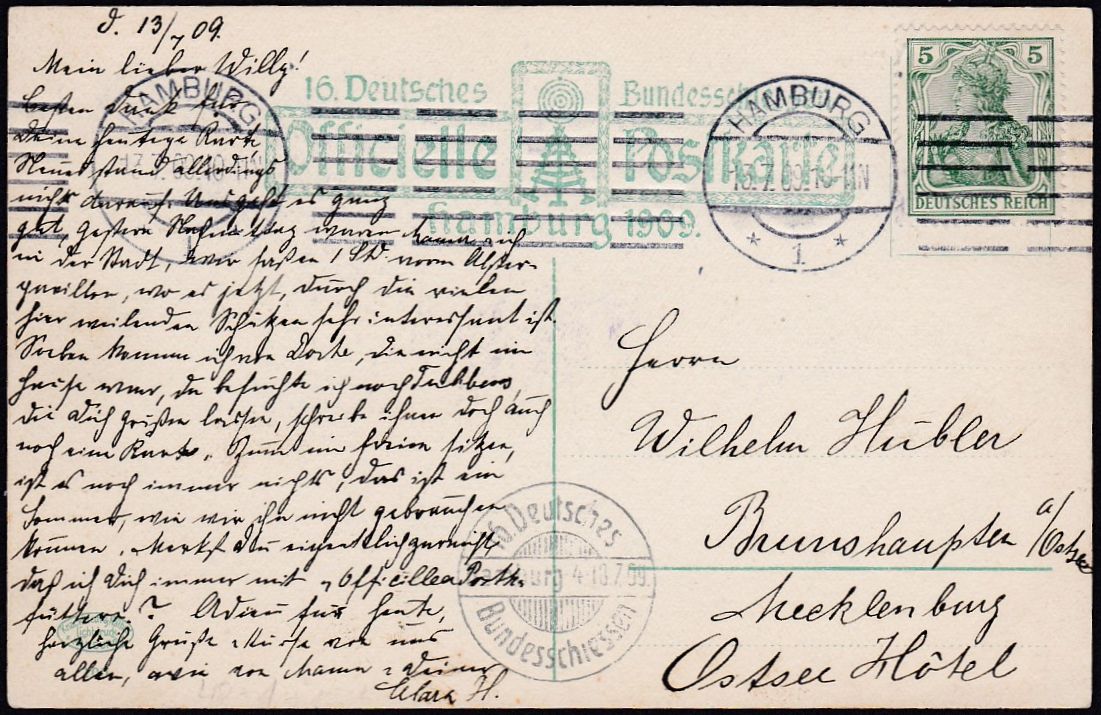 d. 13/7 09.
Mein lieber Willy!
Besten Dank für
Deine heutige Karte
allerdings
nicht darauf. Uns geht es ganz
gut, gestern Nachmittag waren Mama u. ich
in der Stadt, wir saßen 1 Std. vorm Alster-
pavillon, wo es jetzt, durch die vielen
hier weilenden Schützen sehr interessant ist
Soeben komme ich von Dorte, die nicht im
Hause war, da besuchte ich noch
die Dich grüßen lassen, schreibe ihnen doch auch
noch eine Karte. Zum im freien sitzen,
ist es noch immer nichts, das ist ein
Sommer, wie wir ihn nicht gebrauchen
können. Merkst Du eigentlich garnicht
daß ich Dich immer mit "Officiellen Postk.
füttere? Adieu für heute,
herzliche Grüße u. Küsse von uns
allen, wie von Mama u. Deiner
Clara H.
16. Deutsches Bundessch
Officielle Postkarte
Hamburg 1909.
HAMBURG
HAMBURG
13.7.09.10-11N
* 1 *
5 5
DEUTSCHES REICH
Herrn
Wilhelm Hübler
Brunshaupten a/Ostsee
Mecklenburg
Ostsee Hôtel
16. Deutsches
Hamburg 4-13.7.09.
Bundesschiessen